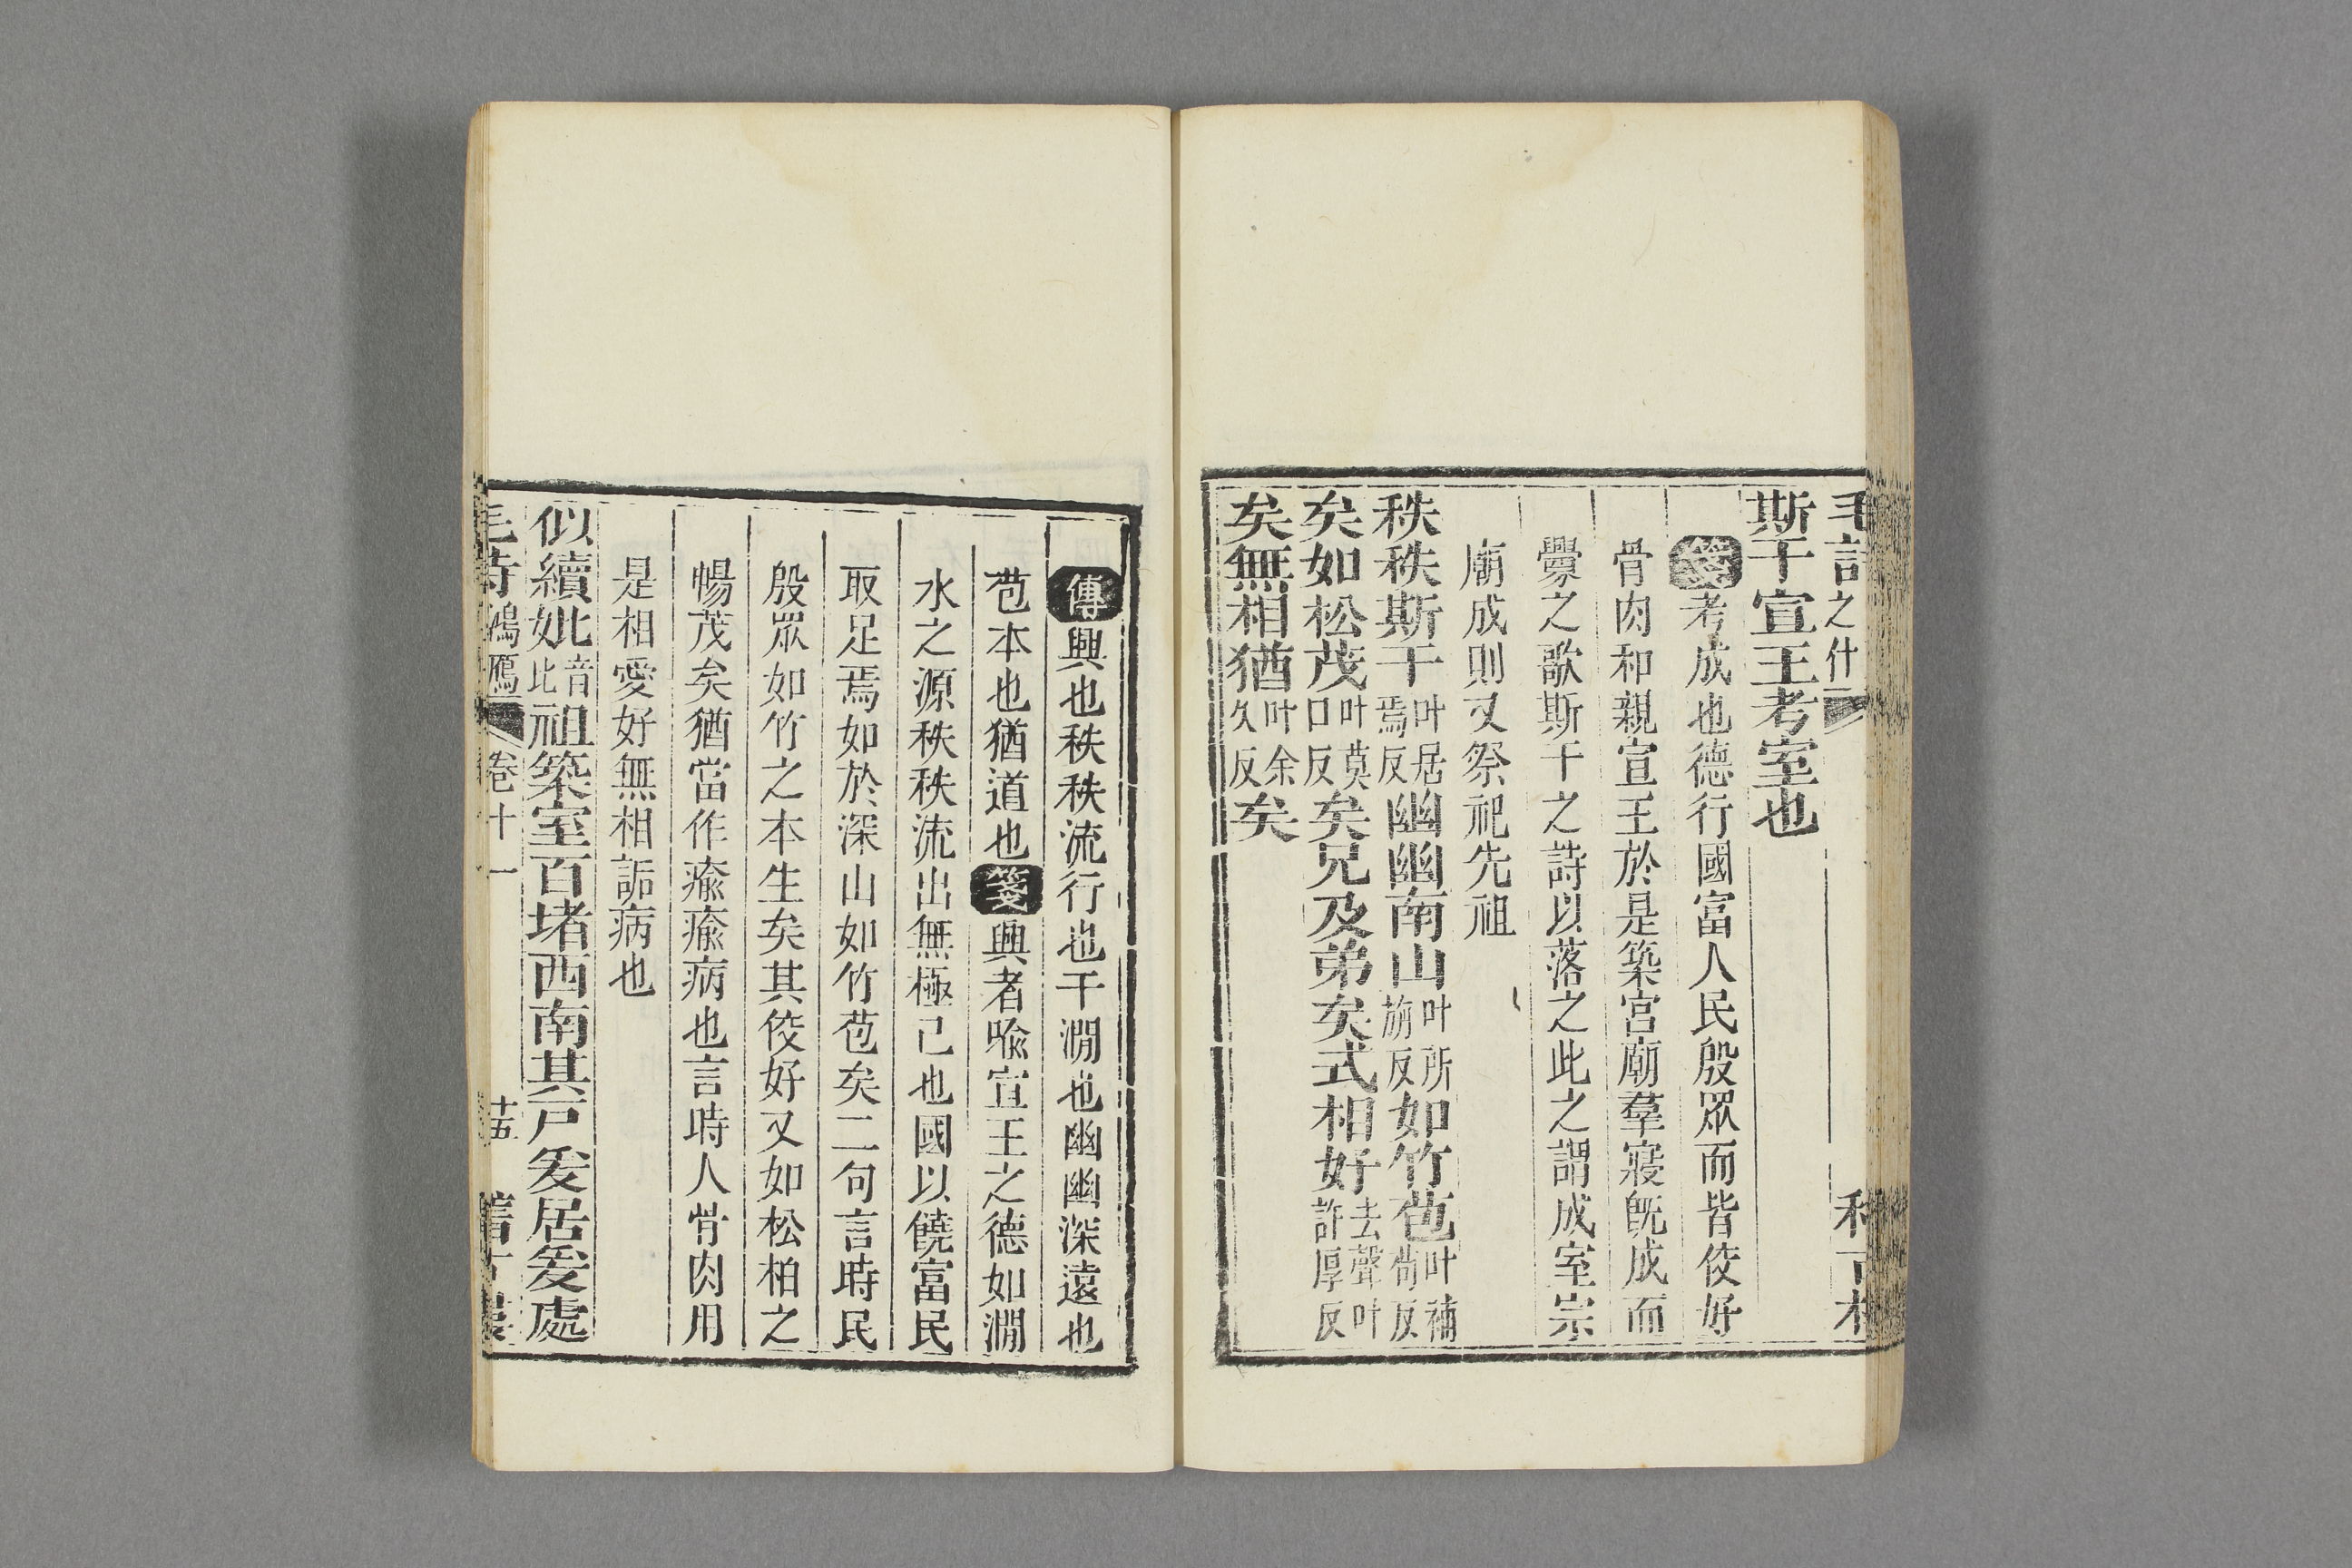 斯干宣王考室也
箋考成也德行國富人民殷眾而皆佼好
骨肉和親宣王於是築宮廟羣寢既成而
釁之歌斯干之詩以落之此之謂成室宗
廟成則又祭祀先祖
秩秩斯干叶居焉反幽幽南山叶所旃反如竹苞叶補茍反
矣如松茂叶莫口反矣兄及弟矣式相好去聲叶許厚反
矣無相猶叶余久反矣
傳興也秩秩流行也干澗也幽幽深遠也
苞本也猶道也箋興者喻宣王之德如澗
水之源秩秩流出無極已也國以饒富民
取足焉如於深山如竹苞矣二句言時民
殷眾如竹之本生矣其佼好又如松柏之
暢茂矣猶當作瘉瘉病也言時人骨肉用
是相愛好無相詬病也
似續妣音比祖築室百堵西南其戶爰居爰處
毛詩鴻鴈 卷十一 十五